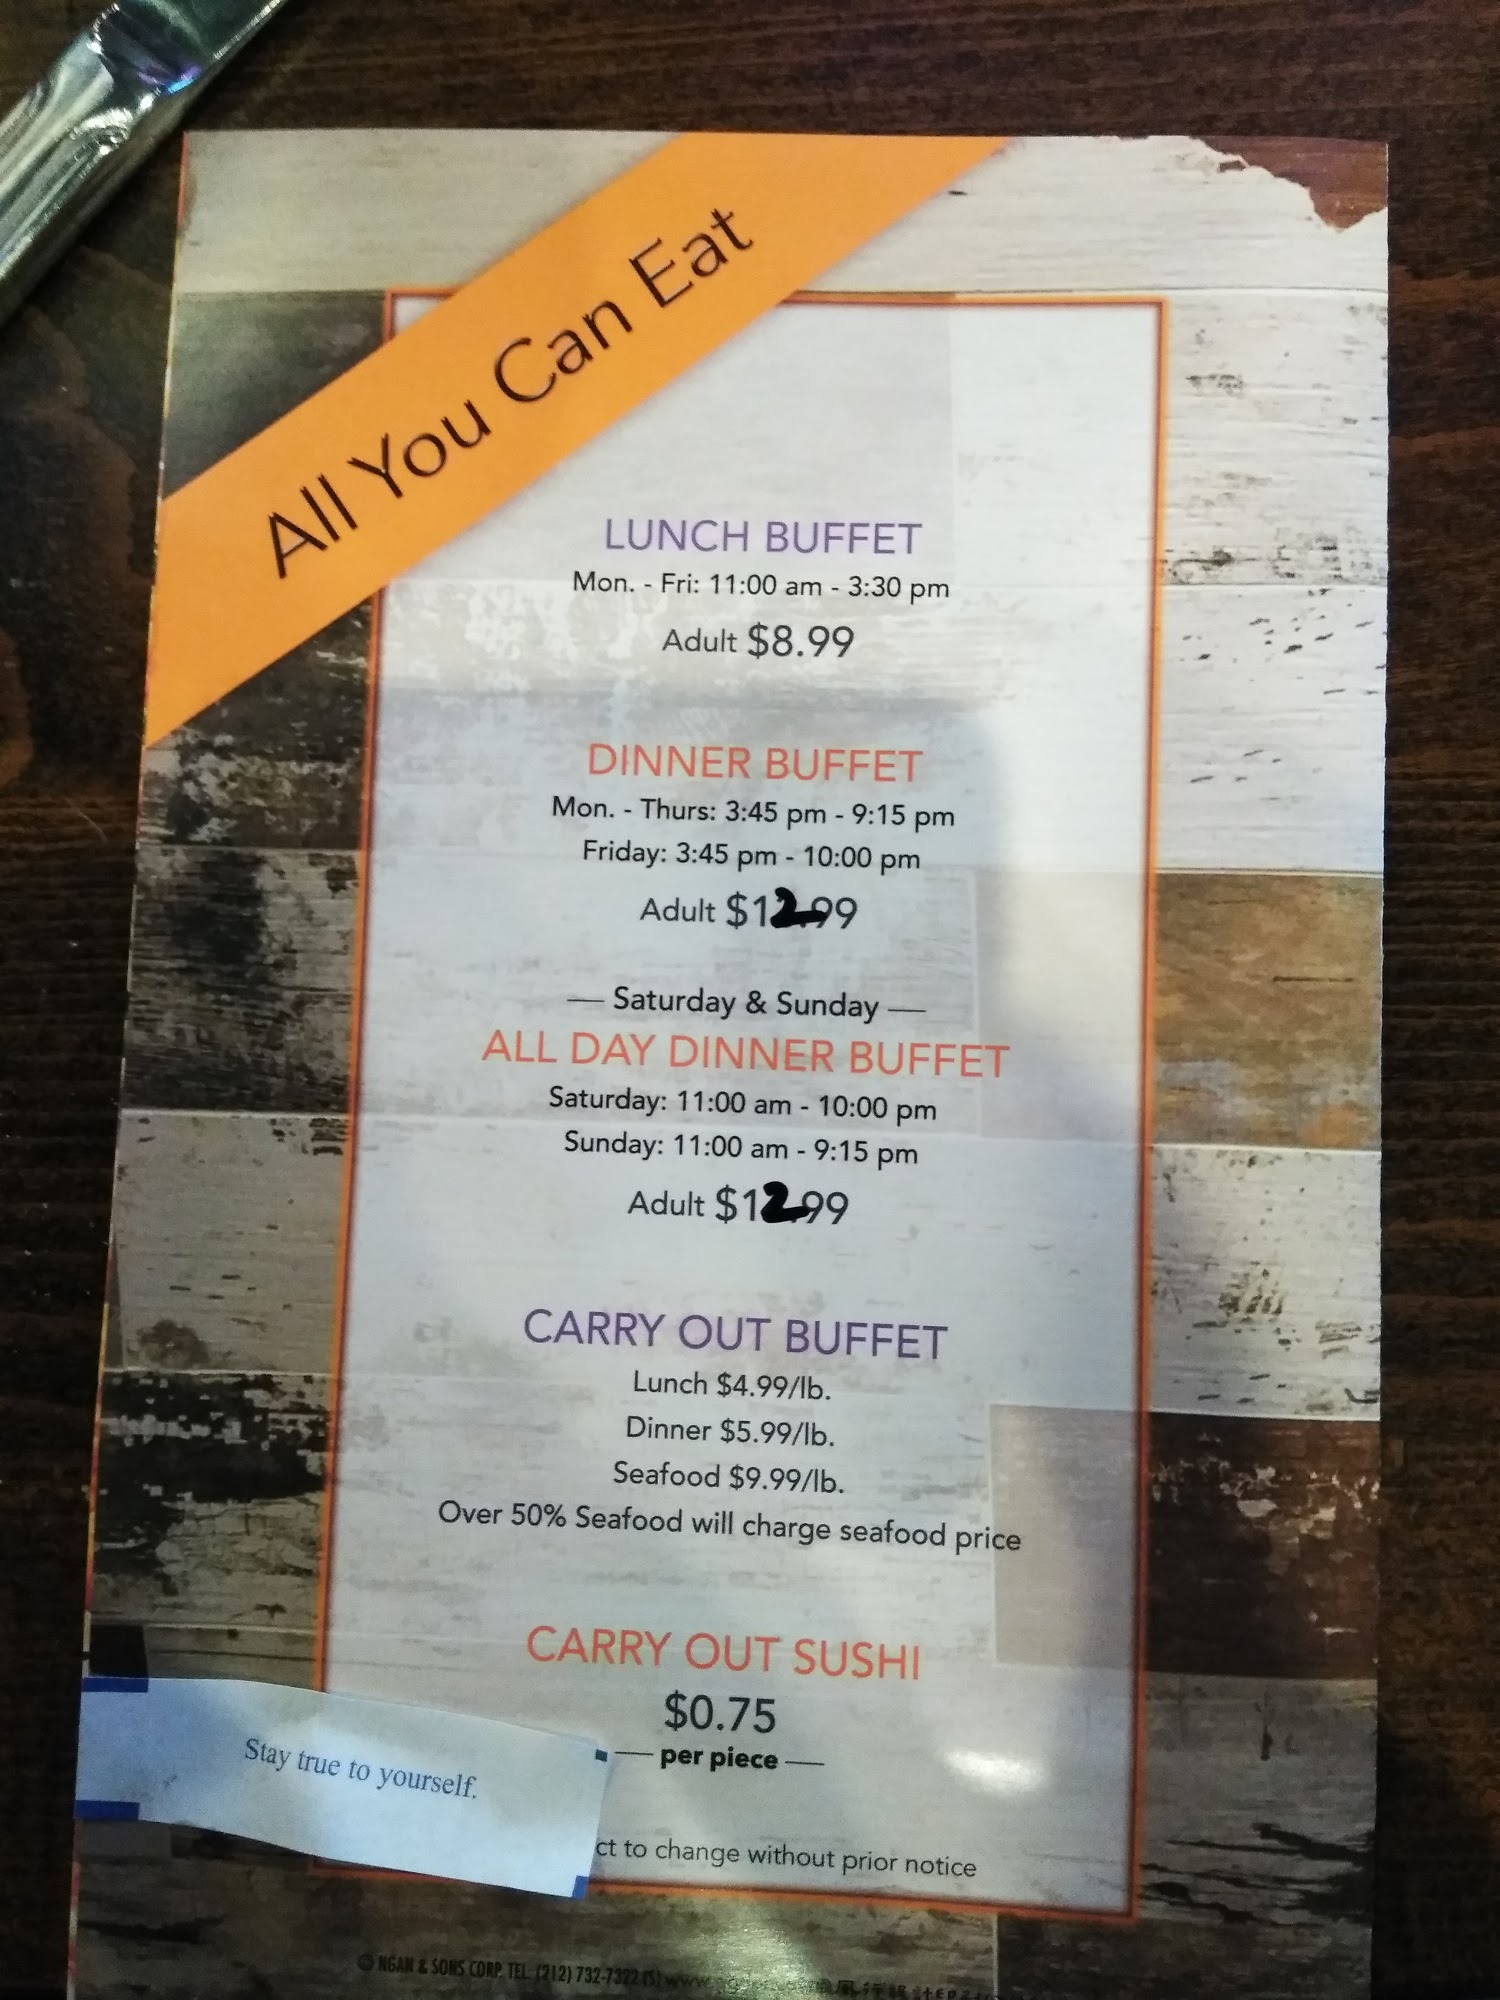 All You Can Eat
LUNCH BUFFET
Mon. - Fri: 11:00 am - 3:30 pm
Adult $8.99
DINNER BUFFET
Mon. - Thurs: 3:45 pm - 9:15 pm
Friday: 3:45 pm - 10:00 pm
Adult $12.99
— Saturday & Sunday —
ALL DAY DINNER BUFFET
Saturday: 11:00 am - 10:00 pm
Sunday: 11:00 am - 9:15 pm
Adult $12.99
CARRY OUT BUFFET
Lunch $4.99/lb.
Dinner $5.99/lb.
Seafood $9.99/lb.
Over 50% Seafood will charge seafood price
CARRY OUT SUSHI
$0.75
— per piece —
Stay true to yourself.
ct to change without prior notice
© NGAN & SONS CORP. TEL. (212) 732-7322 (S)